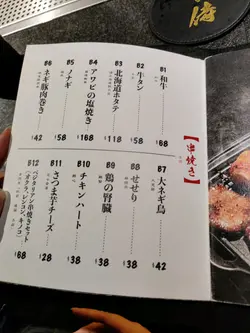 【串焼き】
B1
和牛
$58
B2
牛タン
$58
B3
北海道ホタテ
$118
B4
アワビの塩焼き
$168
B5
ノナギ
$58
B6
ネギ豚肉巻き
$42
B7
大ネギ鳥
$42
B8
せせり
$38
B9
鶏の腎臓
$38
B10
チキンハート
$38
B11
さつま芋チーズ
$28
B12
ベジタリアン串焼きセット
(オクラ、レンコン、キノコ)
$68